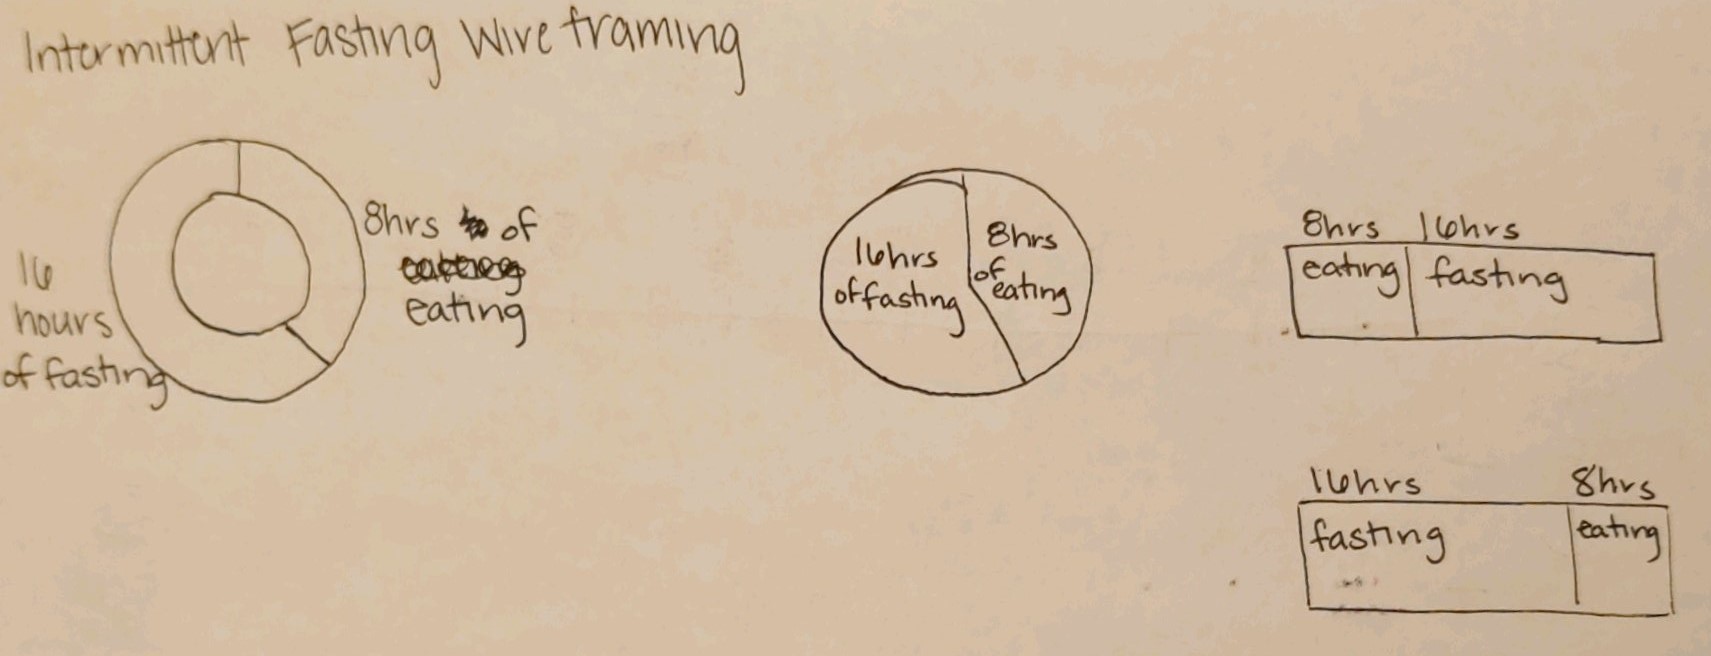 Intermittent Fasting Wireframing
8hrs of
eating
16
hours
of fasting
16hrs
of fasting
8hrs
of
eating
8hrs 16hrs
eating fasting
16hrs 8hrs
fasting eating